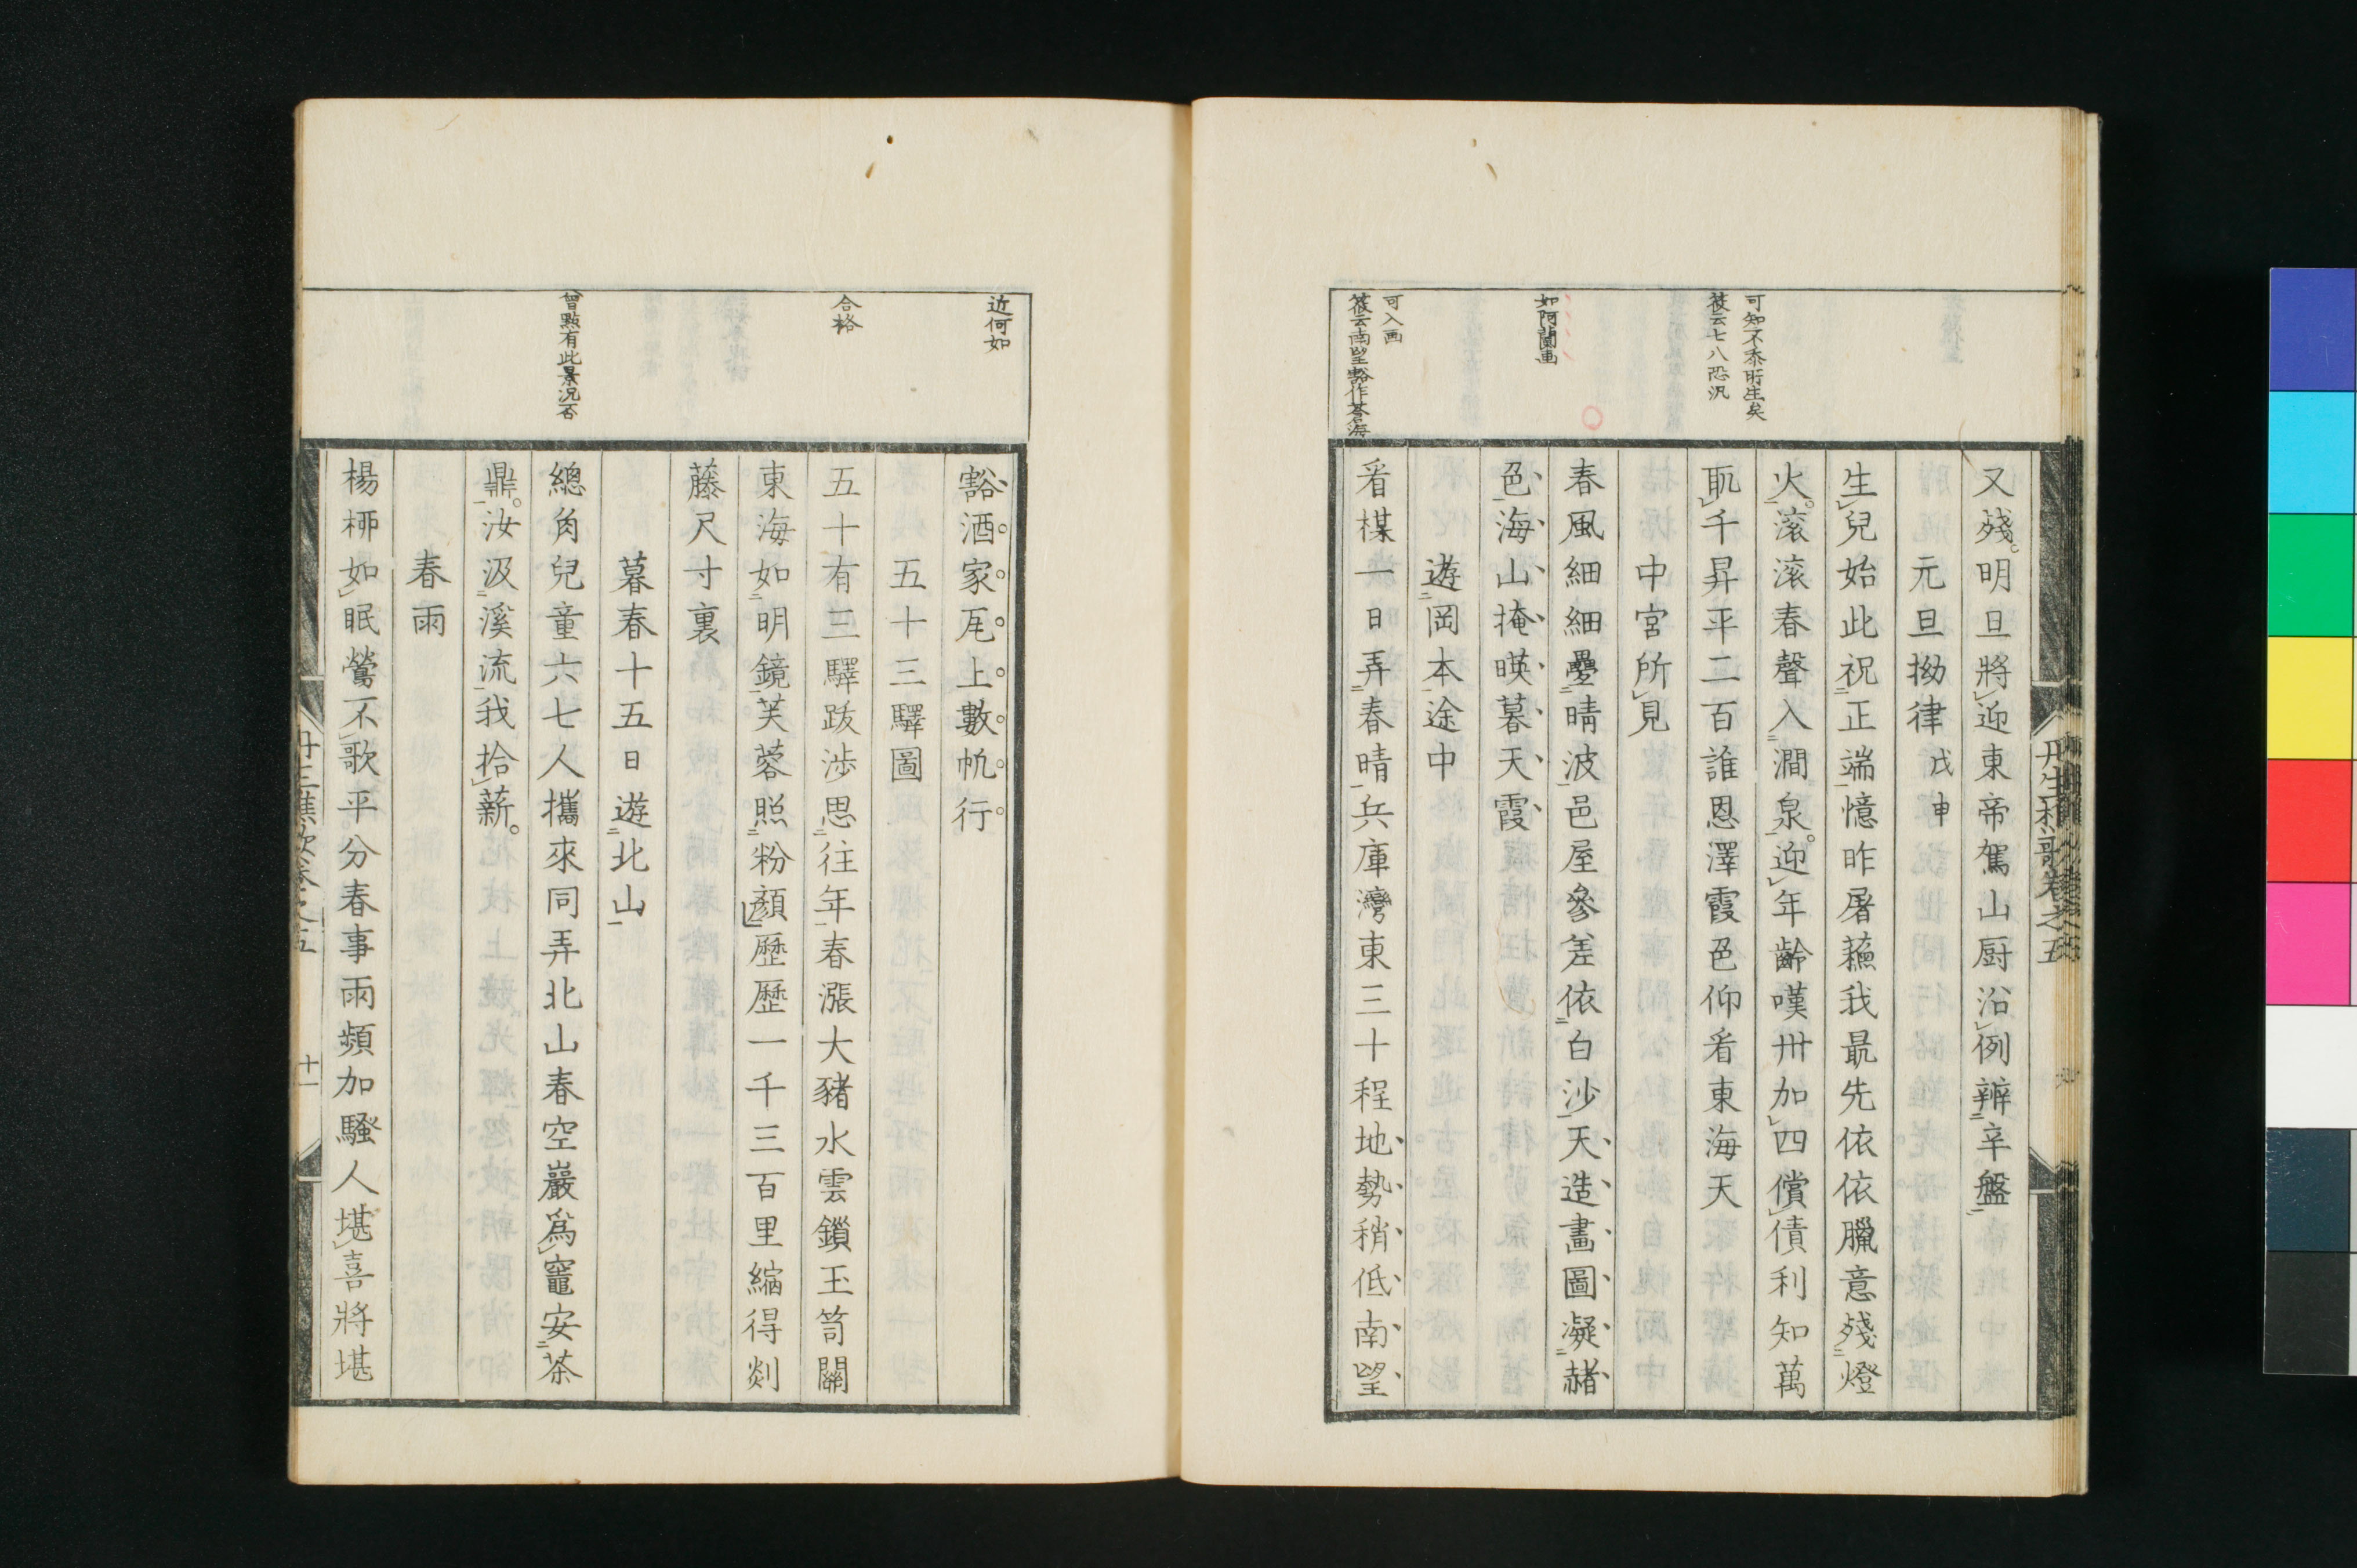 又殘明旦將迎東帝駕山厨沿例辨辛盤
元旦拗律戊申
生兒始此祝正端憶昨屠蘓我最先依依臘意殘燈
火滚滚春聲入澗泉迎年齡嘆卅加四償債利知萬
耴千昇平二百誰恩澤霞色仰看東海天
中宮所見
春風細細疊晴波邑屋參差依白沙天造畵圖凝赭
色海山掩暎暮天霞
遊岡本途中
看楳一日弄春晴兵庫灣東三十程地勢稍低南望
可知不忝所生矣
筱云七八恐汎
如阿蘭画
可入画
筱云南望豁作蒼海
豁酒家瓦上數帆行
五十三驛圖
五十有三驛跋渉思往年春漲大豬水雲鎖玉笥關
東海如明鏡芙蓉照粉顏歷歷一千三百里縮得剡
藤尺寸裏
暮春十五日遊北山
總角兒童六七人攜來同弄北山春空巖爲竈安茶
鼎汝汲溪流我拾薪
春雨
楊柳如眠鶯不歌平分春事雨頻加騷人堪喜將堪
近何如
合格
曾點有此景況否
十一